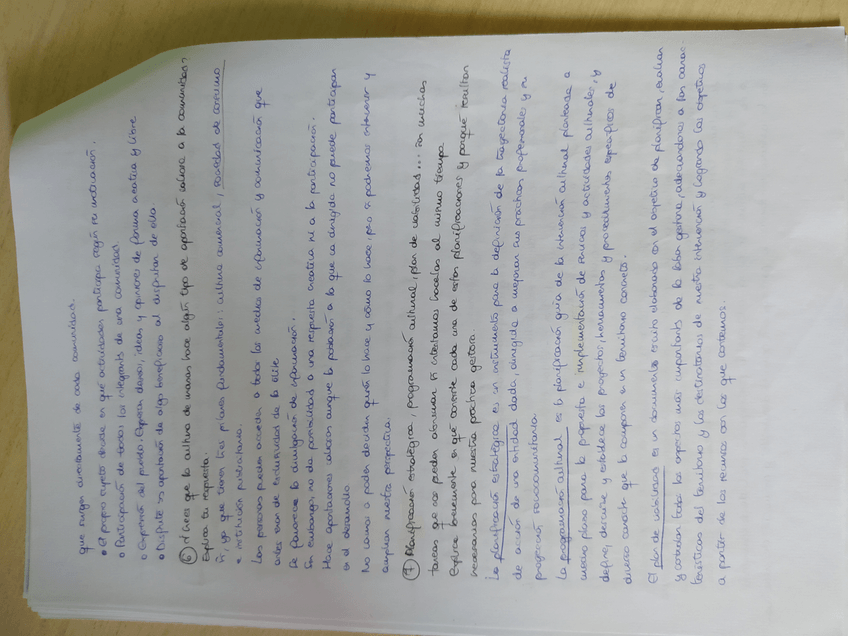 que surgen directamente de cada comunidad.
• El propio sujeto decide en qué actividades participa según su motivación.
• Participación de todos los integrants de una comunidad.
• Expresión del pueblo. Expresan deseos, ideas y opiniones de forma creativa y libre
• Disfrute vs aportación de algo beneficioso al disfrutar de ella.
⑥ ¿Crees que la cultura de masas hace algún tipo de aportación valiosa a la comunidad?
Explica tu respuesta.
Sí, ya que tienen tres pilares fundamentales: cultura comercial, sociedad de consumo
e institución publicitaria.
Las personas pueden acceder a todos los medios de información y comunicación que
antes eran de exclusividad de la élite.
Se favorece la divulgación de información.
Sin embargo, no da posibilidad a una respuesta creativa ni a la participación.
Hace aportaciones valiosas aunque la población a la que va dirigida no puede participar
en el desarrollo.
No vamos a poder decidir quién lo hace y cómo lo hace, pero sí podremos intervenir y
ampliar nuestra perspectiva.
⑦ Planificación estratégica, programación cultural, plan de viabilidad... son muchas
tareas que nos pueden abrumar si intentamos hacerlas al mismo tiempo.
Explica brevemente en qué consiste cada una de estas planificaciones y porqué resultan
necesarias para nuestra práctica gestora.
La planificación estratégica es un instrumento para la definición de la trayectoria realista
de acción de una entidad dada, dirigida a mejorar sus prácticas profesionales y su
proyección sociocomunitaria.
La programación cultural es la planificación guía de la intervención cultural planteada a
medio plazo para la propuesta e implementación de servicios y actividades culturales, y
define, describe y establece los proyectos, herramientas y procedimientos específicos de
diverso carácter que la componen en un territorio concreto.
El plan de viabilidad es un documento escrito elaborado con el objetivo de planificar, evaluar
y controlar todos los aspectos más importants de la labor gestora, adecuándonos a las carac-
terísticas del territorio y los destinatarios de nuestra intervención y logrando los objetivos
a partir de los recursos con los que contemos.